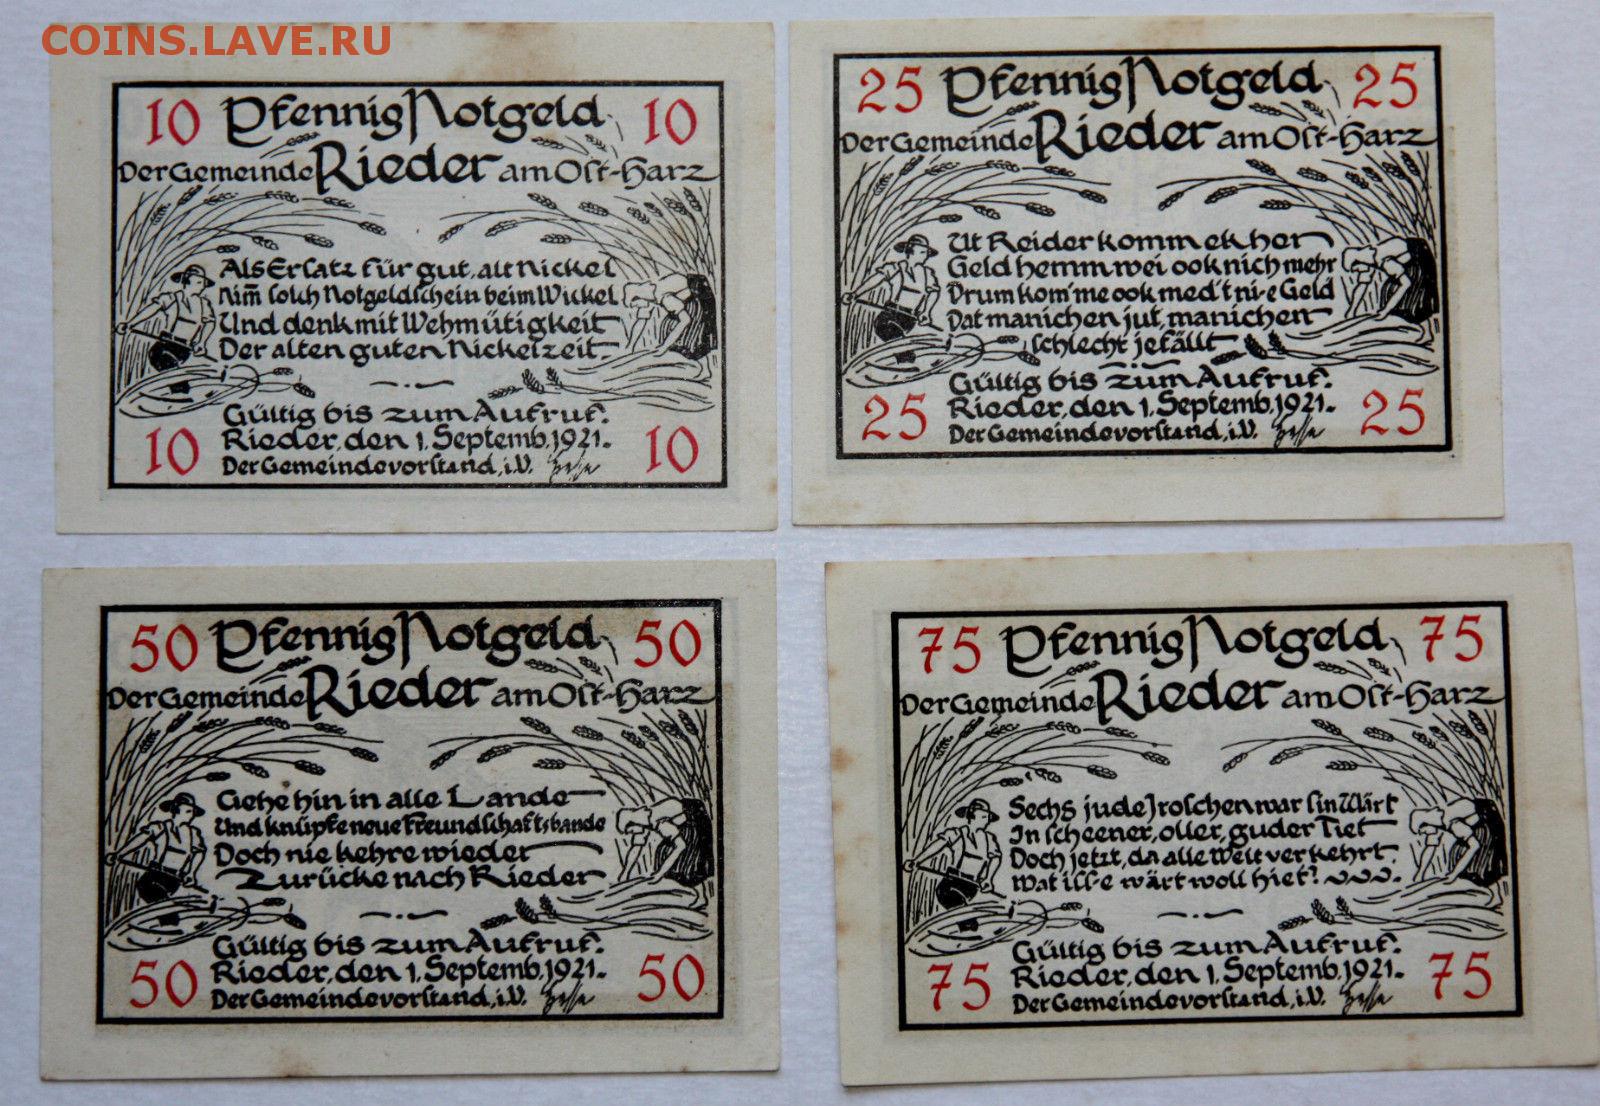 COINS.LAVE.RU
10 Pfennig Notgeld 10
Der Gemeinde Rieder am Ost-Harz
Als Ersatz für gut, alt Nickel
Nim̄ solch Notgeldschein beim Wickel
Und denk mit Wehmütigkeit
Der alten guten Nickelzeit.
Gültig bis zum Aufruf.
Rieder, den 1. Septemb. 1921.
10 Der Gemeindevorstand, i.V. Hesse 10
25 Pfennig Notgeld 25
Der Gemeinde Rieder am Ost-Harz
Ut Reider komm ek her
Geld hemm wei ook nich mehr
Drum kom'me ook med't ni-e Geld
Dat manichen jut, manichen
schlecht jefällt
Gültig bis zum Aufruf.
Rieder, den 1. Septemb. 1921.
25 Der Gemeindevorstand, i.V. Hesse 25
50 Pfennig Notgeld 50
Der Gemeinde Rieder am Ost-Harz
Gehe hin in alle Lande
Und knüpfe neue Freundschaftsbande
Doch nie kehre wieder
Zurücke nach Rieder
Gültig bis zum Aufruf.
Rieder, den 1. Septemb. 1921.
50 Der Gemeindevorstand, i.V. Hesse 50
75 Pfennig Notgeld 75
Der Gemeinde Rieder am Ost-Harz
Sechs jude Jroschen war sin Wärt
In scheener, oller, guder Tiet
Doch jetzt, da alle Welt verkehrt.
Wat iss-e wärt woll hiet?
Gültig bis zum Aufruf.
Rieder, den 1. Septemb. 1921.
75 Der Gemeindevorstand, i.V. Hesse 75